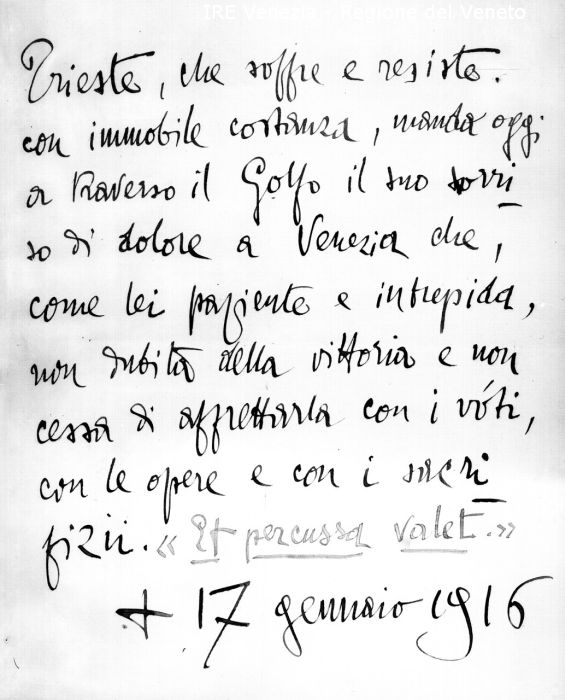 IRE Venezia - Regione del Veneto
Trieste, che soffre e resiste.
con immobile costanza, manda oggi
a traverso il Golfo il suo sorri
so di dolore a Venezia che,
come lei paziente e intrepida,
non dubita della vittoria e non
cessa di affrettarla con i vóti,
con le opere e con i sacri
fizii. « Et percussa valet. »
+ 17 gennaio 1916